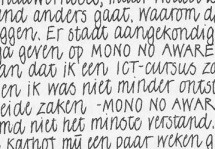 end anders gaat, waarom d
ggen. Er staat aangekondig
ga geven op MONO NO AWARE
an dat ik een ICT-cursus zo
en ik was niet minder ontst
eide zaken -MONO NO AWAR
md niet het minste verstand.
karhot mij een paar weken g